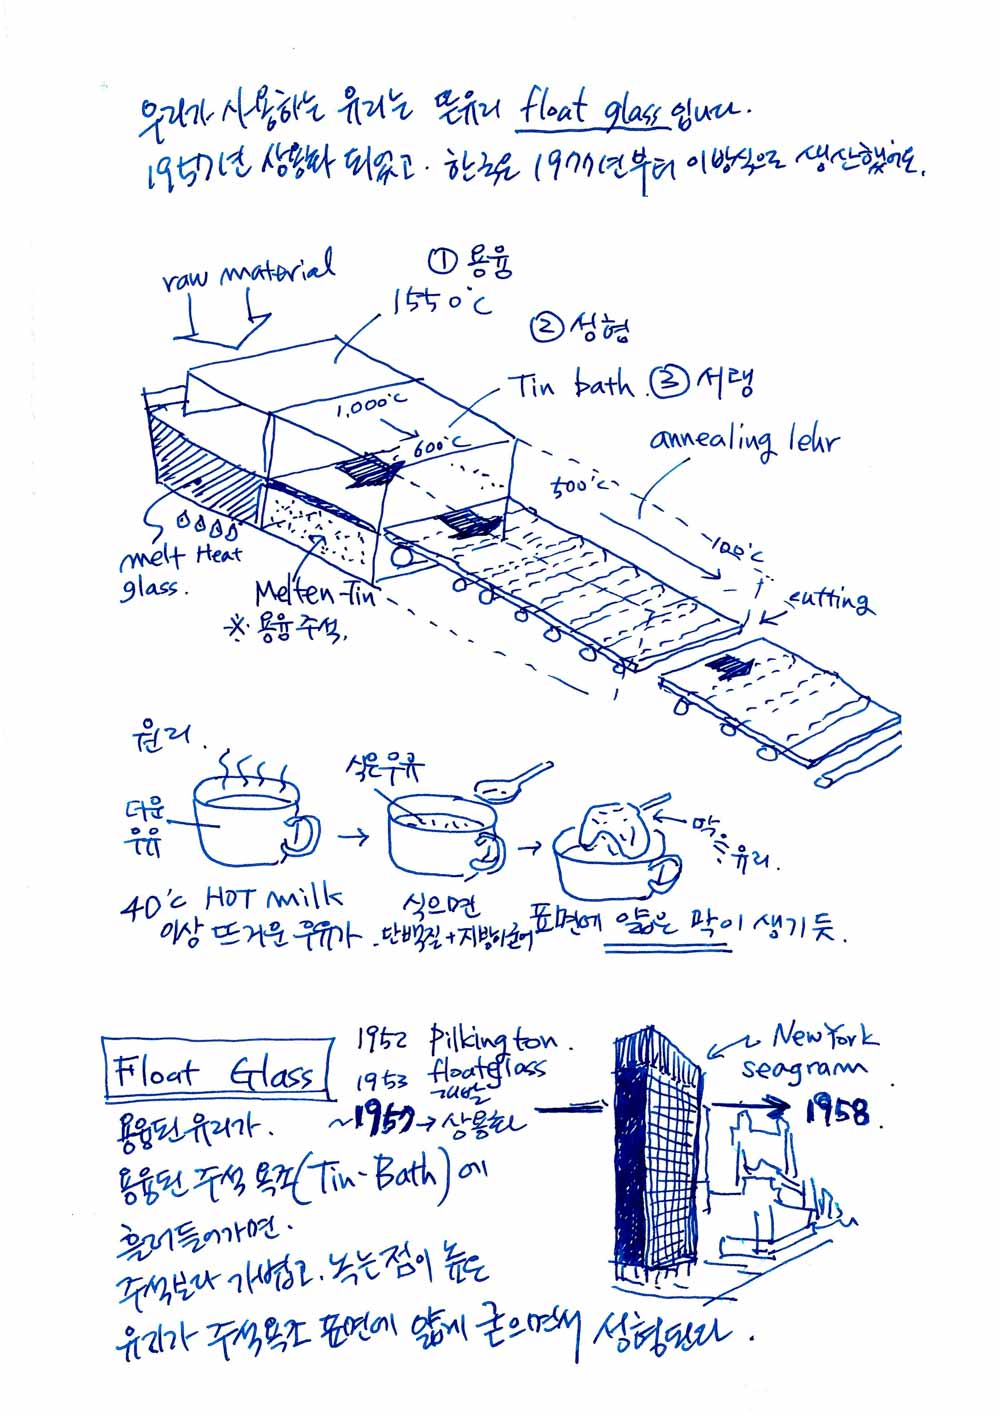 우리가 사용하는 유리는 뜬유리 float glass 입니다.
1957년 상용화 되었고. 한국은 1977년부터 이방식으로 생산했어요.
raw material
① 용융
1550℃
② 성형
Tin bath.
③ 서랭
annealing lehr
1,000℃
600℃
500℃
100℃
cutting
melt
glass.
Heat
Melten Tin
※ 용융주석.
원리.
더운
우유
식은우유
막
유리.
40℃ HOT milk
이상 뜨거운 우유가
식으면
단백질+지방이굳어
표면에 얇은 막이 생기듯.
Float Glass
1952 Pilkington.
1953 floatglass
개발
~1957 → 상용화
New York
seagram
1958.
용융된유리가.
용융된 주석 욕조(Tin-Bath)에
흘러들어가면.
주석보다 가볍고. 녹는점이 높은
유리가 주석욕조 표면에 얇게 굳으면서 성형된다.